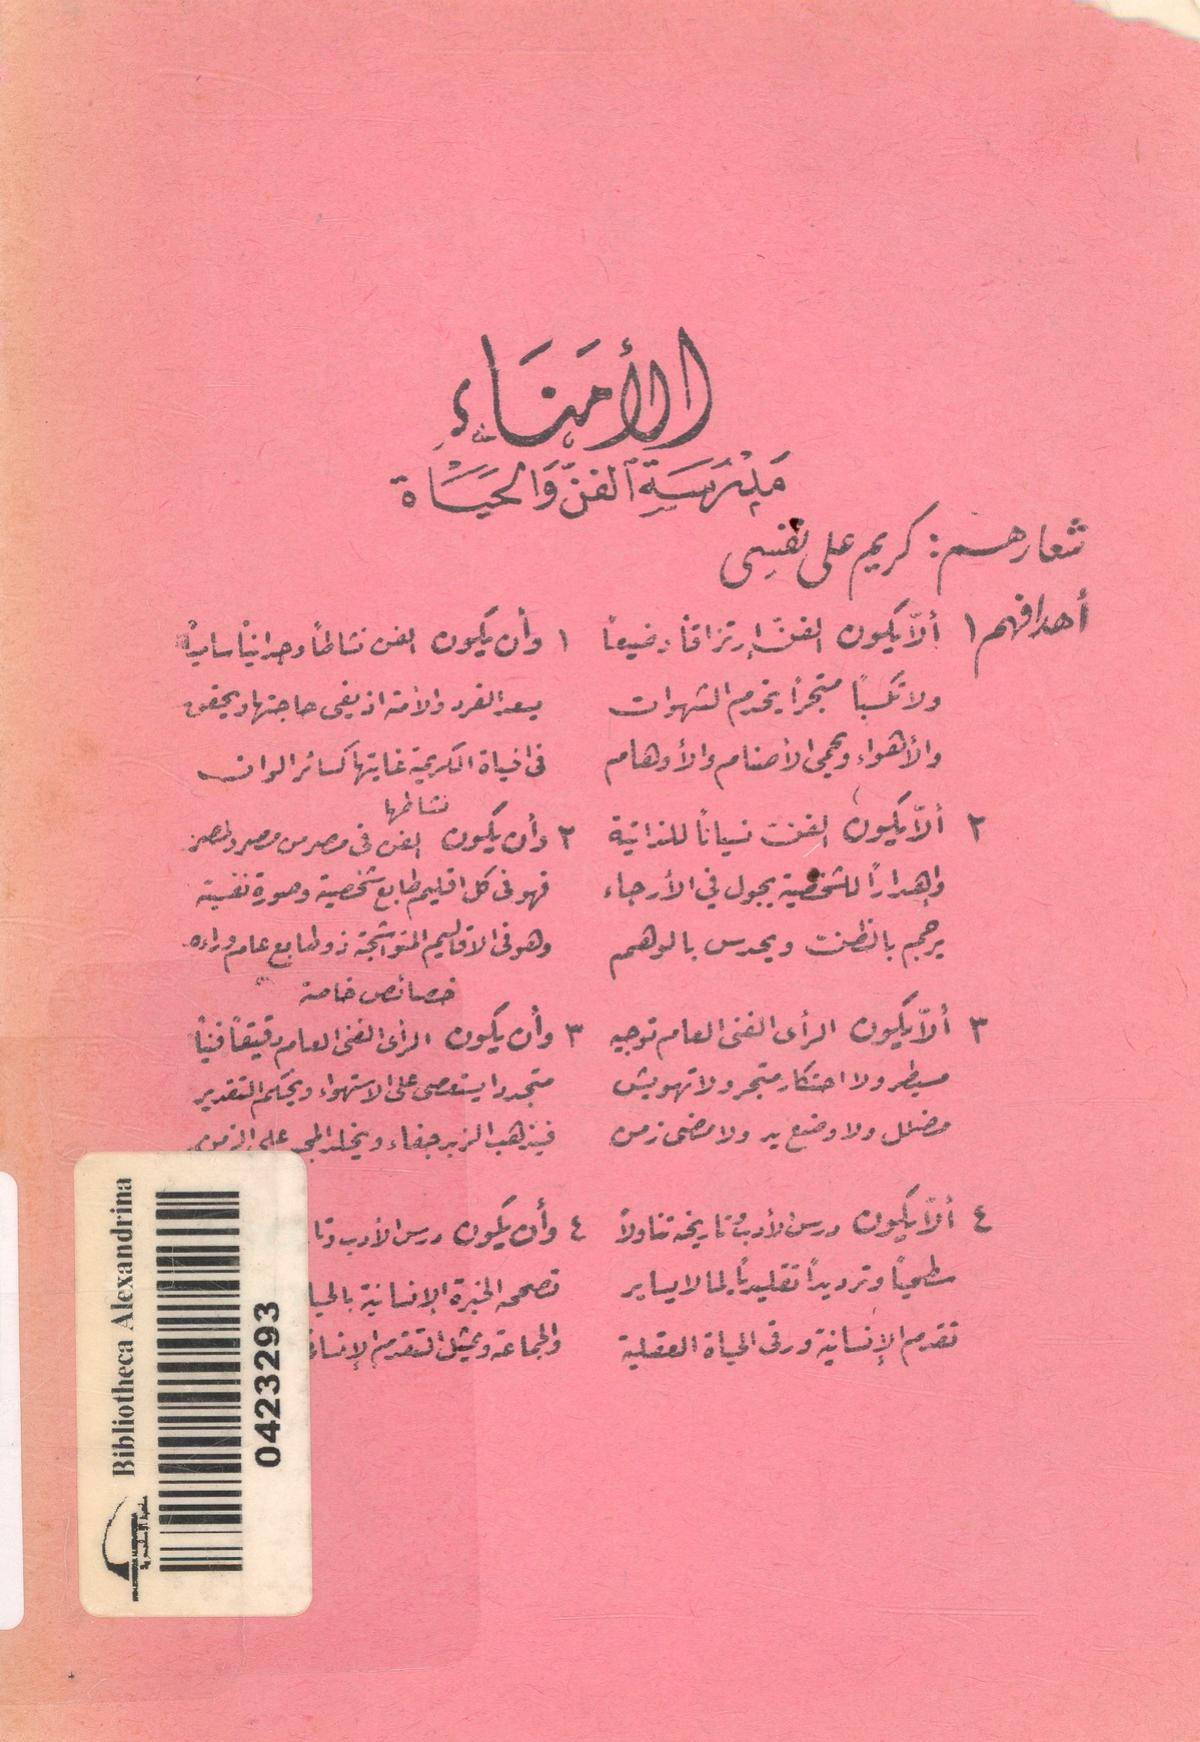 الأُمَنَاءِ
مَدْرَسَة الفنّ وَالحَيَاة
شعارهم: كريم على نفسى
أهدافهم ١ ألّا يكون الفنّ إرتزاقاً وضيعاً
ولا تكسباً متجراً يخدم الشهوات
والأهواء ويحمى الأصنام والأوهام
١ وأن يكون الفن نشاطاً وجدانياً سامياً
يسعد الفرد والأمة اذ يفى حاجتها ويحقق
فى الحياة الكريمة غاياتها كسائر الوان
نشاطها
٢ ألّا يكون الفن نسياناً للذاتية
وإهداراً للشخصية يجول في الأرجاء
يرجم بالظن ويحدس بالوهم
٢ وأن يكون الفن فى مصر من مصر ولمصر
فهو فى كل اقليم طابع شخصية وصورة نفسية
وهو فى الاقاليم المتواشجة ذو طابع عام وراءه
خصائص خاصة
٣ ألّا يكون الرأى الفنى العام توجيه
مسيطر ولا احتكار متجر ولا تهويش
مضلل ولا وضع يد ولا مضى زمن
٣ وأن يكون الرأى الفنى العام دقيقاً فنياً
متجددا يستعصى على الاستهواء ويحكم التقدير
فيذهب الزبد جفاء ويخلد المجد على الزمن
٤ ألّا يكون درس الأدب وتاريخه تناولاً
سطحياً وترديداً تقليدياً لما لا يساير
تقدم الإنسانية ورقى الحياة العقلية
٤ وأن يكون درس الأدب وتا
تصححه الخبرة الإنسانية بالحيا
والجماعة ويمثل التقدم الإنسانى
Bibliotheca Alexandrina
مكتبة الإسكندرية
0423293